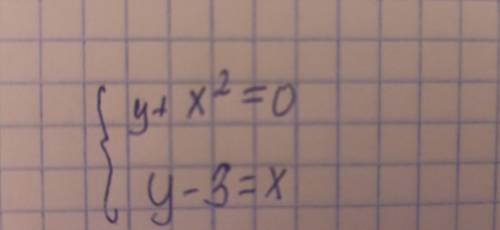 y + x² = 0
y - 3 = x